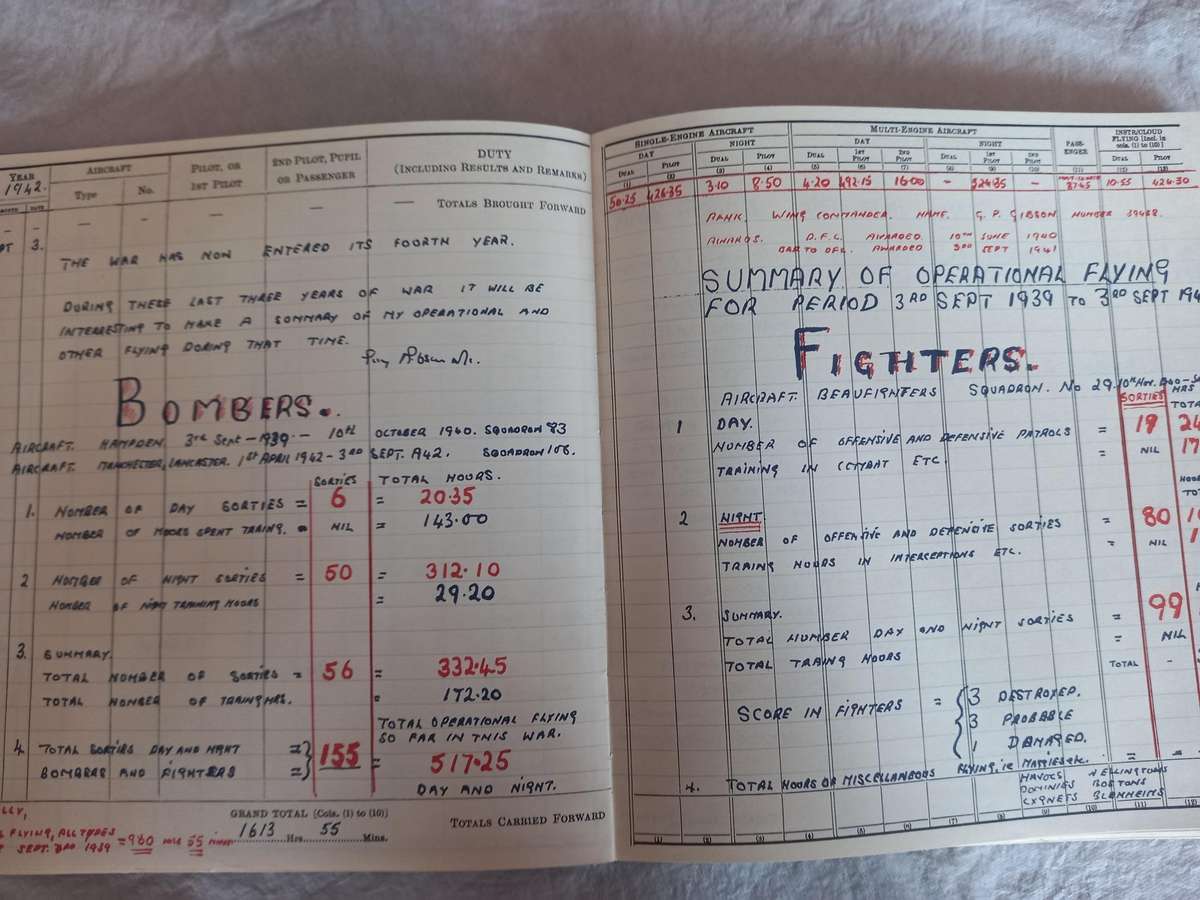 YEAR
1942.
AIRCRAFT
Type
No.
PILOT, OR
1ST PILOT
2ND PILOT, PUPIL
OR PASSENGER
DUTY
(INCLUDING RESULTS AND REMARKS)
— — — — — TOTALS BROUGHT FORWARD
PT 3. THE WAR HAS NOW ENTERED ITS FOURTH YEAR.
DURING THESE LAST THREE YEARS OF WAR IT WILL BE
INTERRESTING TO MAKE A SUMMARY OF MY OPERATIONAL AND
OTHER FLYING DURING THAT TIME.
BOMBERS.
AIRCRAFT. HAMPDEN. 3rd Sept - 1939 - 10th OCTOBER 1940. SQUADRON 83
AIRCRAFT MANCHESTER, LANCASTER. 1ST APRIL 1942 - 3RD SEPT. 942. SQUADRON 106.
SORTIES TOTAL HOURS.
1. NUMBER OF DAY SORTIES = 6 = 20.35
NUMBER OF HOURS SPENT TRAING. = NIL = 143.00
2 NUMBER OF NIGHT SORTIES = 50 = 312.10
NUMBER OF NIGHT TRAINING HOURS = 29.20
3. SUMMARY.
TOTAL NUMBER OF SORTIES = 56 = 332.45
TOTAL NUMBER OF TRAING HRS. = 172.20
TOTAL OPERATIONAL FLYING
SO FAR IN THIS WAR.
4. TOTAL SORTIES DAY AND NIGHT =} 155 = 517.25
BOMBERS AND FIGHTERS =}
DAY AND NIGHT.
LLY,
FLYING, ALL TYPES
SEPT. 3RD 1939 = 980 55
GRAND TOTAL [Cols. (1) to (10)]
1613 Hrs. 55 Mins.
TOTALS CARRIED FORWARD
SINGLE-ENGINE AIRCRAFT
MULTI-ENGINE AIRCRAFT
PASS-
ENGER
INSTR/CLOUD
FLYING [Incl. in
cols. (1) to (10)]
DAY NIGHT DAY NIGHT
DUAL PILOT DUAL 1ST PILOT 2ND PILOT DUAL 1ST PILOT 2ND PILOT DUAL PILOT
PILOT
(1) (2) (3) (4) (5) (6) (7) (8) (9) (10) (11) (12) (13)
50.25 426.35 3.10 8.50 4.20 492.15 16.00 - 524.35 - 87.45 10.55 424.30
RANK. WING COMMANDER. NAME. G. P. GIBSON NUMBER 39438.
AWARDS. D.F.C. AWARDED 10TH JUNE 1940
BAR TO DFC. AWARDED 3RD SEPT 1941
SUMMARY OF OPERATIONAL FLYING
FOR PERIOD 3RD SEPT 1939 TO 3RD SEPT 194
FIGHTERS.
AIRCRAFT. BEAUFIGHTERS SQUADRON. No 29. 10TH NOV.
SORTIES HRS
TOTAL
1 DAY.
NUMBER OF OFFENSIVE AND DEFENSIVE PATROLS = 19 24
TRAINING IN COMBAT ETC. = NIL 17
2 NIGHT
NUMBER OF OFFENSIVE AND DEFENSIVE SORTIES = 80
TRAING HOURS IN INTERCEPTIONS ETC. = NIL
3. SUMMARY.
TOTAL NUMBER DAY AND NIGHT SORTIES = 99
TOTAL TRAING HOURS = NIL
TOTAL -
SCORE IN FIGHTERS = { 3 DESTROYED.
3 PROBABLE
1 DAMAGED.
4. TOTAL HOURS OR MISCELLANEOUS FLYING, ie MAGGIES etc. =
HAVOCS WELLINGTONS
DOMINIES BOSTONS
CYGNETS BLENHEIMS
(1) (2) (3) (4) (5) (6) (7) (8) (9) (10) (11) (12)